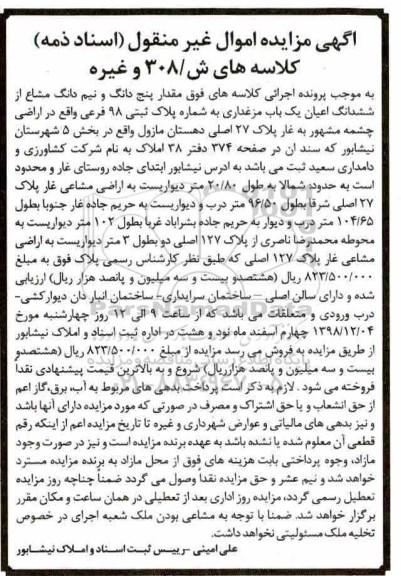 آگهی مزایده اموال غیر منقول (اسناد ذمه)
کلاسه های ش/۳۰۸ و غیره
به موجب پرونده اجرائی کلاسه های فوق مقدار پنج دانگ و نیم دانگ مشاع از
ششدانگ اعیان یک باب مزغداری به شماره پلاک ثبتی ۹۸ فرعی واقع در اراضی
چشمه مشهور به غار پلاک ۲۷ اصلی دهستان مازول واقع در بخش ۵ شهرستان
نیشابور که سند ان در صفحه ۳۷۴ دفتر ۳۸ املاک به نام شرکت کشاورزی و
دامداری سعید ثبت می باشد به ادرس نیشابور ابتدای جاده روستای غار و محدود
است به حدود شمالا به طول ۲۰/۸۰ متر دیواریست به اراضی مشاعی غار پلاک
۲۷ اصلی شرقا بطول ۹۶/۵۰ متر درب و دیواریست به حریم جاده غار جنوبا بطول
۱۰۴/۶۵ متر درب و دیوار به حریم جاده بشراباد غربا بطول ۱۰۲ متر دیواریست به
محوطه محمدرضا ناصری از پلاک ۱۲۷ اصلی دو بطول ۳ متر دیواریست به اراضی
مشاعی غار پلاک ۱۲۷ اصلی که طبق نظر کارشناس رسمی پلاک فوق به مبلغ
۸۲۳/۵۰۰/۰۰۰ ریال (هشتصدو بیست و سه میلیون و پانصد هزار ریال) ارزیابی
شده و دارای سالن اصلی – ساختمان سرایداری- ساختمان انبار دان دیوارکشی-
درب ورودی و متعلقات می باشد که از ساعت ۹ الی ۱۲ روز چهارشنبه مورخ
۱۳۹۸/۱۲/۰۴ چهارم اسفند ماه نود و هشت در اداره ثبت اسناد و املاک نیشابور
از طریق مزایده به فروش می رسد مزایده از مبلغ ۸۲۳/۵۰۰/۰۰۰ ریال (هشتصدو
بیست و سه میلیون و پانصد هزارریال) شروع و به بالاترین قیمت پیشنهادی نقدا
فروخته می شود . لازم به ذکر است پرداخت بدهی های مربوط به آب، برق،گاز اعم
از حق انشعاب و یا حق اشتراک و مصرف در صورتی که مورد مزایده دارای آنها باشد
و نیز بدهی های مالیاتی و عوارض شهرداری و غیره تا تاریخ مزایده اعم از اینکه رقم
قطعی آن معلوم شده یا نشده باشد به عهده برنده مزایده است و نیز در صورت وجود
مازاد، وجوه پرداختی بابت هزینه های فوق از محل مازاد به برنده مزایده مسترد
خواهد شد و نیم عشر و حق مزایده نقدا وصول می گردد ضمناً چناچه روز مزایده
تعطیل رسمی گردد، مزایده روز اداری بعد از تعطیلی در همان ساعت و مکان مقرر
برگزار خواهد شد. ضمنا با توجه به مشاعی بودن ملک شعبه اجرای در خصوص
تخلیه ملک مسئولیتی نخواهد داشت.
علی امینی -رییس ثبت اسناد و املاک نیشابور